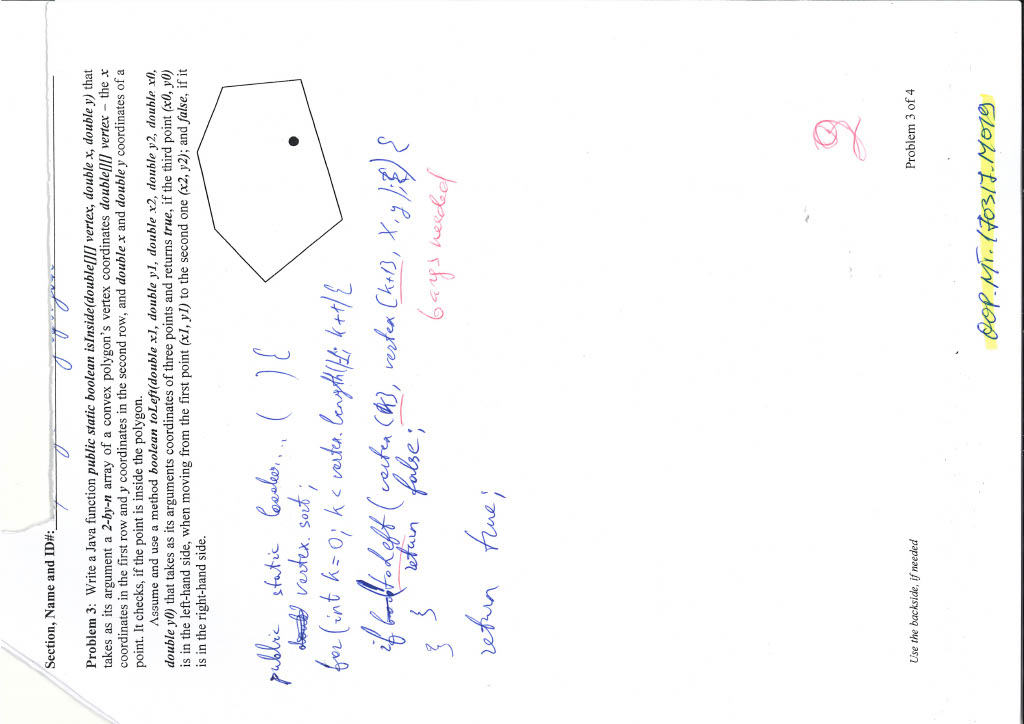 Section, Name and ID#:
Problem 3: Write a Java function public static boolean isInside(double[][] vertex, double x, double y) that
takes as its argument a 2-by-n array of a convex polygon's vertex coordinates double[][] vertex – the x
coordinates in the first row and y coordinates in the second row, and double x and double y coordinates of a
point. It checks, if the point is inside the polygon.
Assume and use a method boolean toLeft(double x1, double y1, double x2, double y2, double x0,
double y0) that takes as its arguments coordinates of three points and returns true, if the third point (x0, y0)
is in the left-hand side, when moving from the first point (x1, y1) to the second one (x2, y2); and false, if it
is in the right-hand side.
public static ( ) {
vertex. sort;
for (int k = 0; k < vertex. length k++) {
if toLeft ( vertex vertex [k+1], x, y ) {
return false;
}
}
6 args needed
return true;
Use the backside, if needed
Problem 3 of 4
OOP.MT.170317.M019